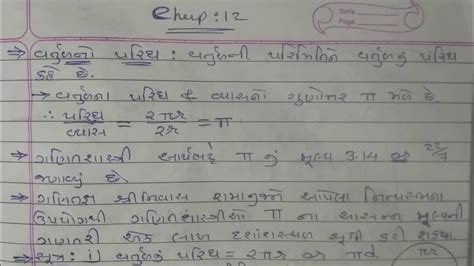 Chap : 12
Date
Page
⇒ વર્તુળનો પરિઘ : વર્તુળની પરિમિતિને વર્તુળનું પરિઘ
કહે છે.
→ વર્તુળના પરિઘ & વ્યાસનો ગુણોત્તર π મળે છે
∴ પરિઘ/વ્યાસ = 2πr/2r = π
⇒ ગણિતશાસ્ત્રી આર્યભટ્ટે π નું મૂલ્ય 3.14 or 22/7
જણાવ્યું છે.
⇒ ગણિતજ્ઞ શ્રીનિવાસ રામાનુજને આપેલા નિત્યસમના
ઉપયોગથી ગણિતશાસ્ત્રીઓ π ના આસન્ન મૂલ્યની
ગણતરી લાખ દશાંશસ્થળ સુધી કરી શક્યા
⇒ સૂત્ર: i) વર્તુળનું પરિઘ = 2πr or πd.
πr